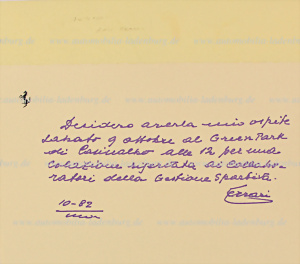 Desidero averLa mio ospite
sabato 9 ottobre al Green Park
di Casinalbo alle 12 per una
colazione riservata ai collabo-
ratori della Gestione Sportiva.
Ferrari
10-82